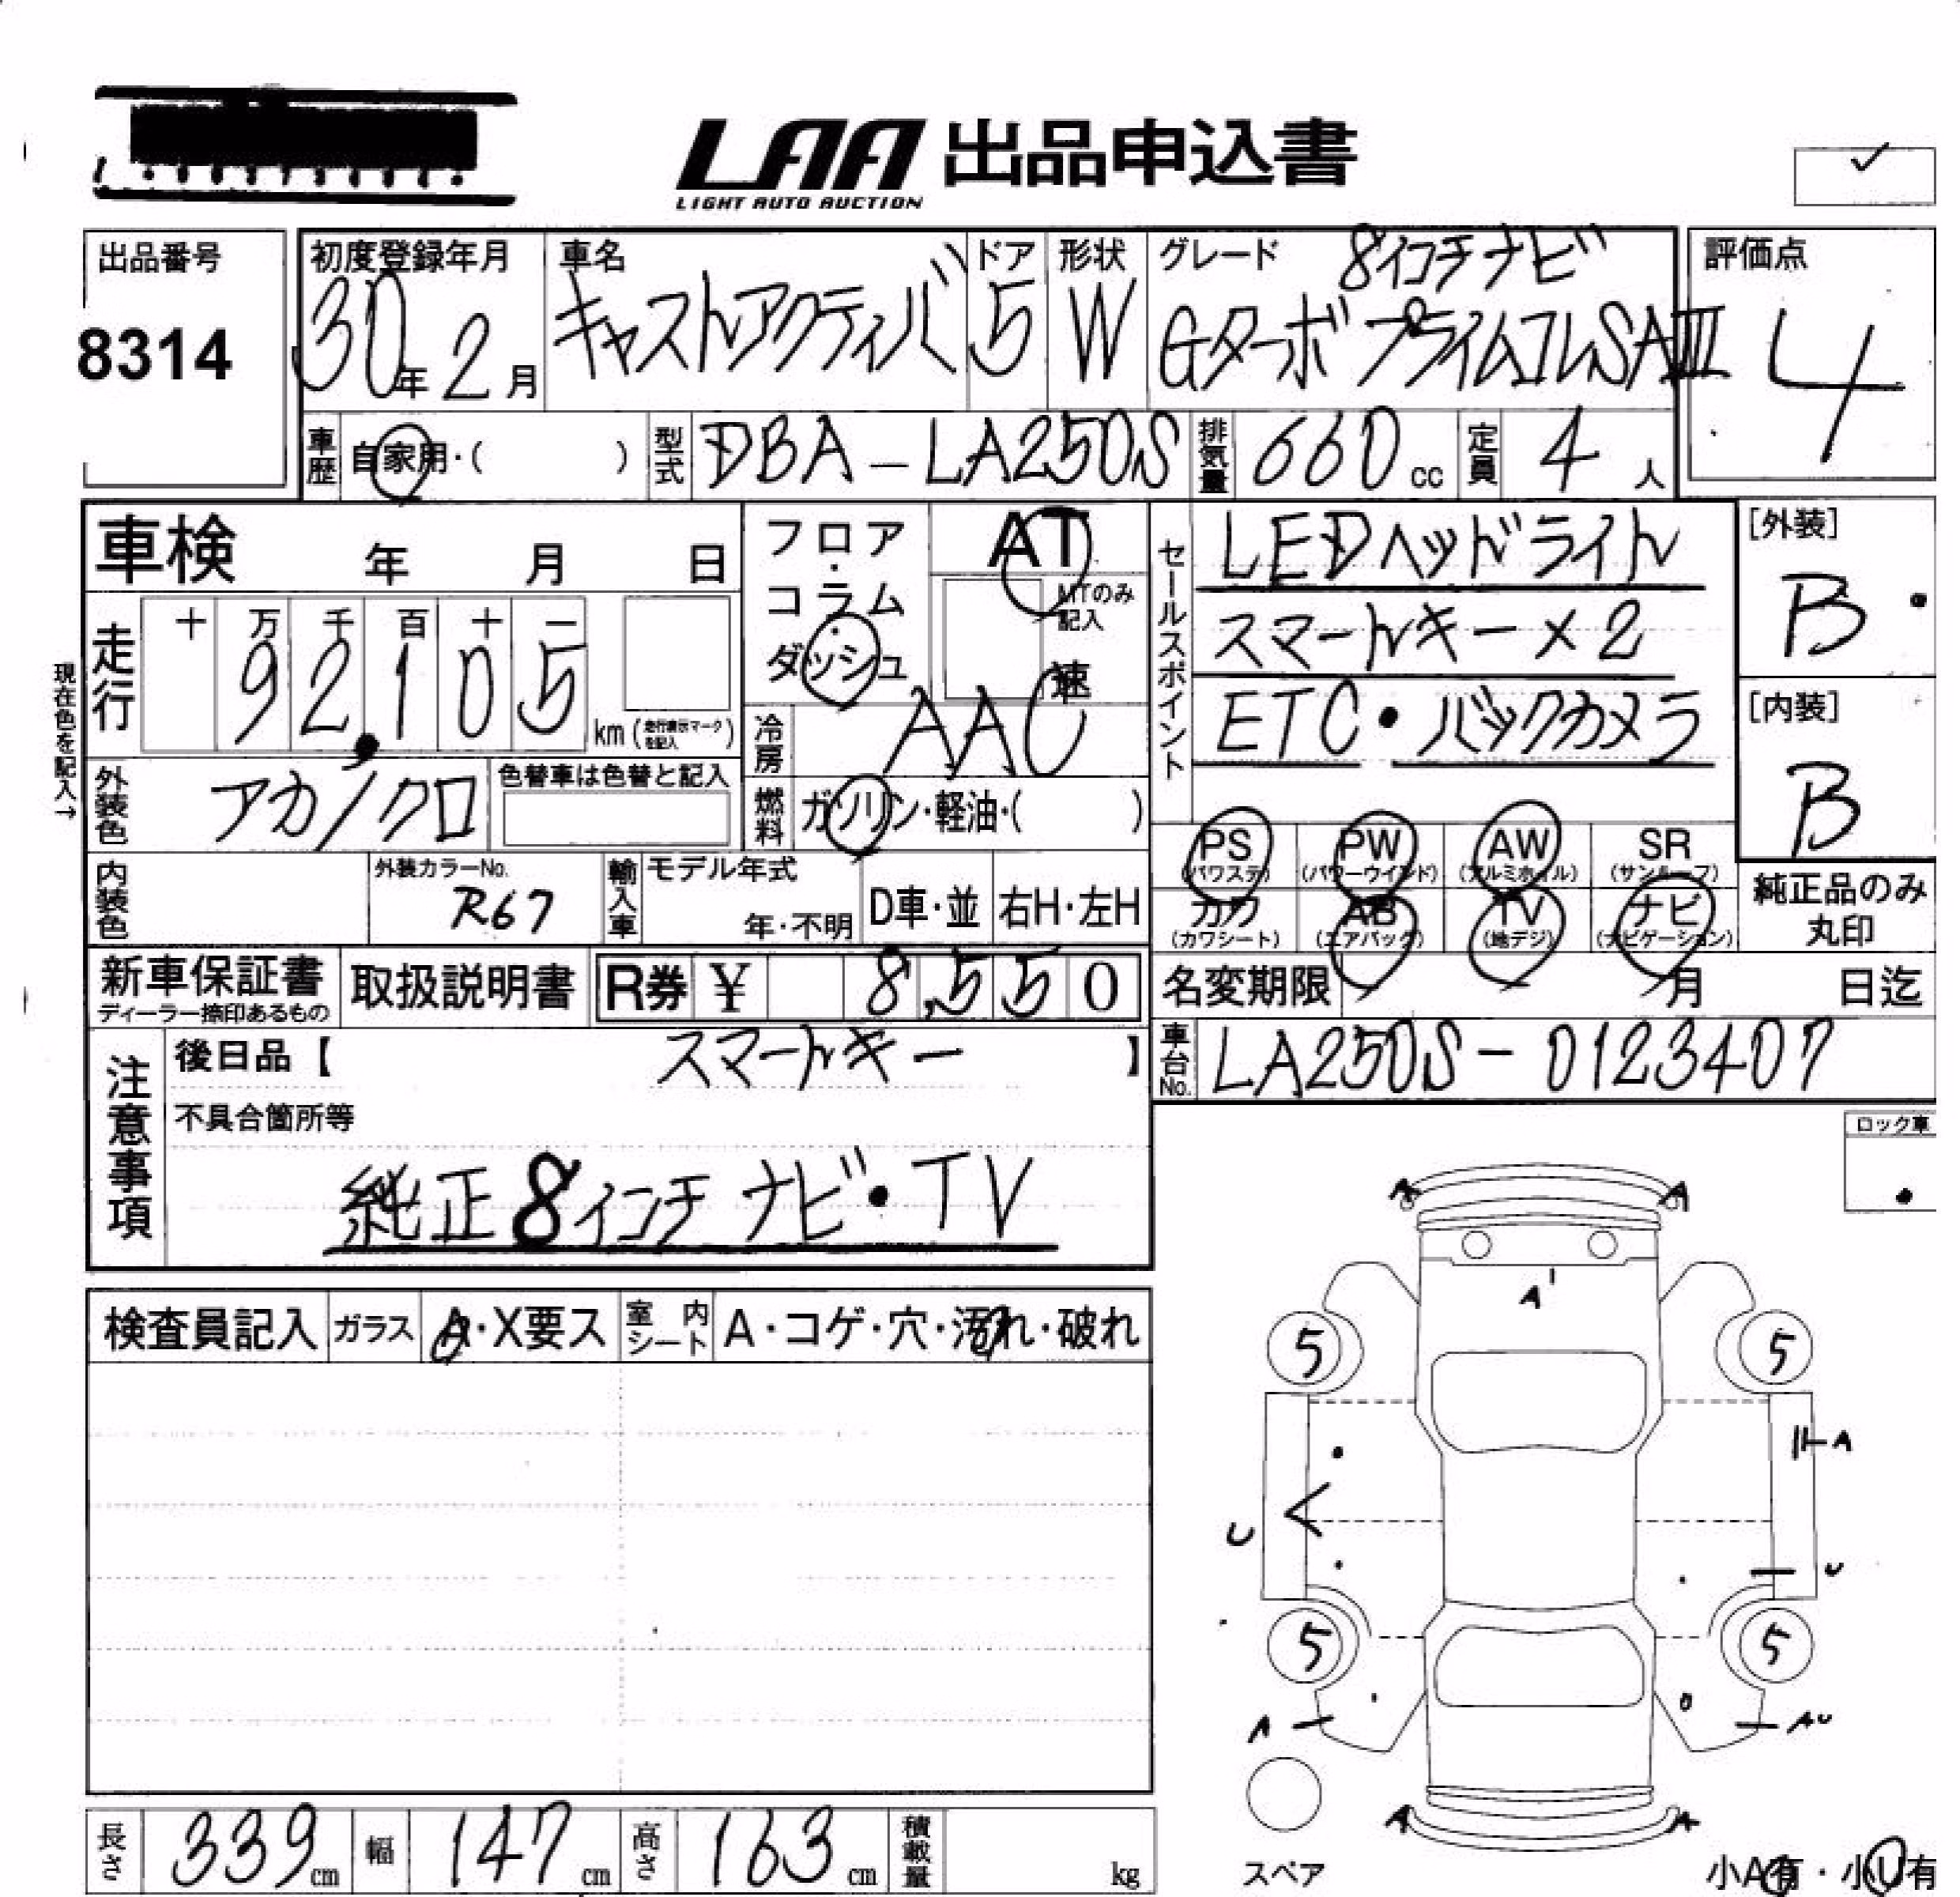 LAA 出品申込書
LIGHT AUTO AUCTION
出品番号
8314
初度登録年月
30年2月
車名
キャストアクティバ
ドア
5
形状
W
グレード
8インチナビ
Gターボ プライムコレSAⅢ
評価点
4
車歴
自家用・( )
型式
DBA-LA250S
排気量
660cc
定員
4人
車検 年 月 日
フロア・コラム・ダッシュ
AT
MTのみ記入
速
セールスポイント
LEDヘッドライト
スマートキー×2
ETC・バックカメラ
[外装]
B
[内装]
B
現在色を記入→
走行
十 万 千 百 十 一
92,105
km(走行表示マークを記入)
冷房
AAC
外装色
アカ/クロ
色替車は色替と記入
燃料
ガソリン・軽油・( )
PS (パワステ)
PW (パワーウインド)
AW (アルミホイル)
SR (サンルーフ)
内装色
外装カラーNo.
R67
輸入車
モデル年式
年・不明
D車・並
右H・左H
カワ (カワシート)
AB (エアバッグ)
TV (地デジ)
ナビ (ナビゲーション)
純正品のみ丸印
新車保証書
ディーラー捺印あるもの
取扱説明書
R券 ¥ 8,550
名変期限 月 日迄
注意事項
後日品【 スマートキー 】
車台No.
LA250S-0123407
不具合箇所等
純正8インチナビ・TV
ロック車
検査員記入
ガラス
A・X要ス
室内シート
A・コゲ・穴・汚れ・破れ
A A
A'
5 5
A
U
U
5 5
A AU
A A
スペア
小A有・小U有
長さ
339cm
幅
147cm
高さ
163cm
積載量
kg